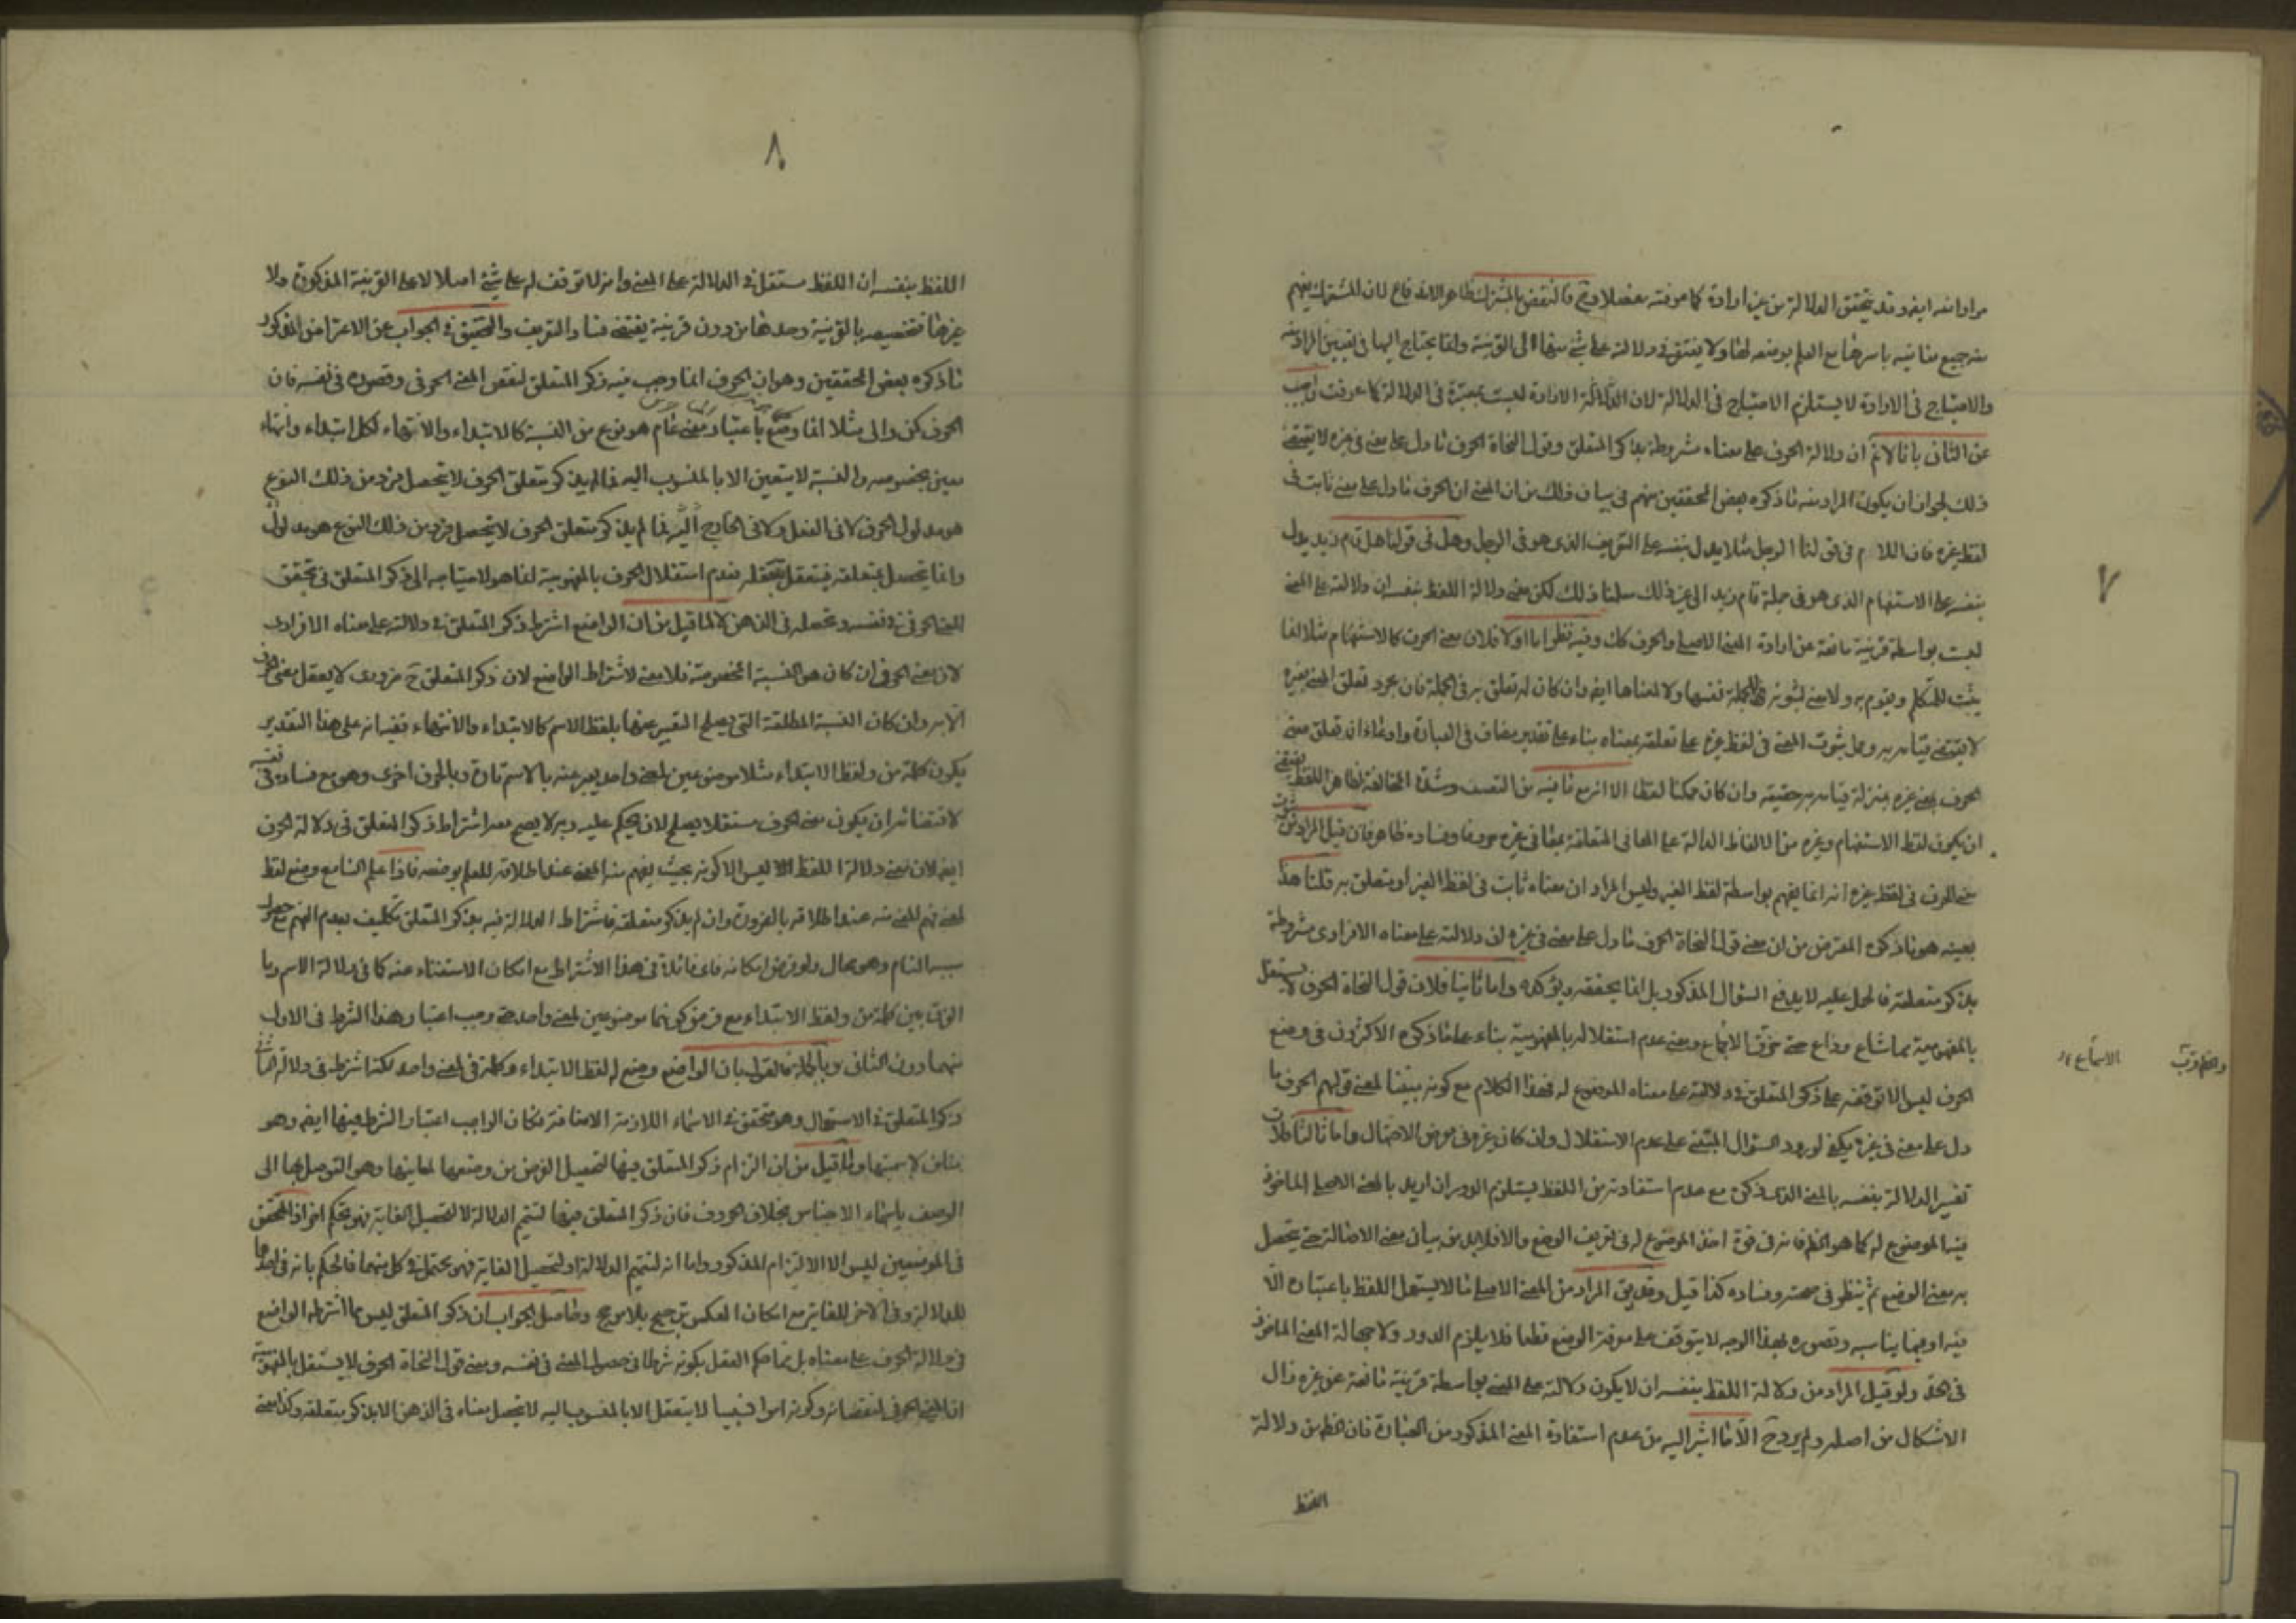 مرادا منه ايضا وقد يتحقق الدلالة من غير ارادة كما عرفته مفصلا وح فالنقض بالمشترك ظاهر الاندفاع لان المشترك يفهم
منه جميع معانيه باسرها مع العلم بوضعه لها ولا يفتقر في دلالته على شئ منها الى القرينة وانما يحتاج اليها في تعيين المراد منه
والاحتياج في الارادة لا يستلزم الاحتياج في الدلالة لان الارادة ليست بمعتبرة في الدلالة كما عرفت واجيب
عن الثاني بانا لانم ان دلالة الحرف على معناه مشروطة بذكر المتعلق وقول النحاة الحرف ما دل على معنى في غيره لا يقتضي
ذلك لجواز ان يكون المراد منه ما ذكره بعض المحققين منهم في بيان ذلك من ان المعنى ان الحرف ما دل على معنى ثابت في
لفظ غيره فان اللام في قولنا الرجل مثلا يدل بنفسه على التعريف الذي هو في الرجل وهل في قولنا هل قام زيد يدل
بنفسه على الاستفهام الذي هو في جملة قام زيد الى غير ذلك سلمنا ذلك لكن معنى دلالة اللفظ بنفسه ان دلالته على المعنى
ليست بواسطة قرينة مانعة عن ارادة المعنى الاصلي والحرف كك وفيه نظر اما اولا فلان معنى الحرف كالاستفهام مثلا انما
يثبت للمتكلم ويقوم به ولا معنى لثبوته في الجملة نفسها ولا لمعناها ايضا وان كان له تعلق به في الجملة فان مجرد تعلق المعنى بغيره
لا يقتضي قيامه به وحمل ثبوت المعنى في لفظ غيره على تعلقه بمعناه بناء على تقدير مضاف في العبارة وادعاء ان تعلق معنى
الحرف بمعنى غيره بمنزلة قيامه به حقيقة وان كان ممكنا لفظا الا انه مع ما فيه من التعسف وشدة المخالفة لظاهر اللفظ يقتضي
ان يكون لفظ الاستفهام وغيره من الالفاظ الدالة على المعاني المتعلقة بمعاني غيره حروفا وفساده ظاهر فان قيل المراد من ثبوت
معنى الحرف في لفظ غيره انه انما يفهم بواسطة لفظ الغير وليس المراد ان معناه ثابت في لفظ الغير او متعلق به قلنا هذا
بعينه هو ما ذكره المعترض من ان معنى قول النحاة الحرف ما دل على معنى في غيره ان دلالته على معناه الافرادي مشروطة
بذكر متعلقه فالحمل عليه لا يدفع السؤال المذكور بل انما يحققه ويؤكده واما ثانيا فلان قول النحاة الحرف لا يستقل
بالمفهومية مما شاع وذاع حتى خرق الاجماع ومعنى عدم استقلاله بالمفهومية بناء على ما ذكره الاكثرون في وضع
الحرف ليس الا توقفه على ذكر المتعلق في دلالته على معناه الموضوع له فهذا الكلام مع كونه مبينا لمعنى قولهم الحرف ما
دل على معنى في غيره يكفي لورود السؤال المبتني على عدم الاستقلال وان كان غيره في معرض الاحتمال واما ثالثا فلان
تفسير الدلالة بنفسه بالمعنى الذي ذكره مع عدم استفادته من اللفظ يستلزم الدور ان اريد بالمعنى الاصلي الماخوذ
فيه الموضوع له كما هو الظ فانه في قوة اخذ الموضوع له في تعريف الوضع والا فلا بد من بيان معنى الاصالة حتى يتحصل
به معنى الوضع ثم ينظر في صحته وفساده كذا قيل وقد يق المراد من المعنى الاصلي ما لا يستعمل اللفظ باعتباره الا
فيه او فيما يناسبه وتصوره بهذا الوجه لا يتوقف على معرفة الوضع قطعا فلا يلزم الدور ولا جهالة المعنى الماخوذ
في الحد ولو قيل المراد من دلالة اللفظ بنفسه ان لا يكون دلالته على المعنى بواسطة قرينة مانعة عن غيره زال
الاشكال من اصله ولم يرد ح الا ما اشير اليه من عدم استفادة المعنى المذكور من العبارة فان الظ من دلالة
اللفظ
٧
الاسماع
٨
اللفظ بنفسه ان اللفظ مستقل في الدلالة على المعنى وانه لا توقف له على شئ اصلا لا على القرينة المذكورة ولا
غيرها فتخصيصه بالقرينة وحدها من دون قرينة يقتضي فساد التعريف والتحقيق في الجواب عن الاعتراض المذكور
ما ذكره بعض المحققين وهو ان الحرف انما وجب فيه ذكر المتعلق لنقص المعنى الحرفي وقصوره في نفسه فان
الحرف كمن والى مثلا انما وضع باعتبار معنى عام هو نوع من النسبة كالابتداء والانتهاء لكل ابتداء وانتهاء
معين بخصوصه والنسبة لا يتعين الا بالمنسوب اليه فما لم يذكر متعلق الحرف لا يتحصل فرد من ذلك النوع
هو مدلول الحرف لا في العقل ولا في الخارج فما لم يذكر متعلق الحرف لا يتحصل فرد من ذلك النوع هو مدلول
وانما يتحصل بمتعلقه فيتعقل بتعقله فعدم استقلال الحرف بالمفهومية انما هو لاحتياجه الى ذكر المتعلق في تحقق
المعنى الحرفي في نفسه وتحصله في الذهن لا لما قيل من ان الواضع اشترط ذكر المتعلق في دلالته على معناه الافرادي
لان معنى الحرفي ان كان هو النسبة المخصوصة فلا معنى لاشتراط الواضع لان ذكر المتعلق ح ضروري لا يعقل معنى الحرف
الا به وان كان النسبة المطلقة التي يصلح التعبير عنها بلفظ الاسم كالابتداء والانتهاء ففيه انه على هذا التقدير
يكون كلمة من ولفظ الابتداء مثلا موضوعين لمعنى واحد يعبر عنه بالاسم تارة وبالحرف اخرى وهو مع فساده في نفسه
لاقتضائه ان يكون معنى الحرف مستقلا يصلح لان يحكم عليه وبه لا يصح معه اشتراط ذكر المتعلق في دلالة الحرف
ايضا لان معنى دلالة اللفظ ليس الا كونه بحيث يفهم منه المعنى عند اطلاقه للعلم بوضعه فاذا علم السامع وضع لفظ
لمعنى فهم المعنى منه عند اطلاقه بالضرورة وان لم يذكر متعلقه فاشتراط الدلالة فيه بذكر المتعلق تكليف بعدم الفهم مع حصول
سببه التام وهو محال ولو فرض امكانه فاي فائدة في هذا الاشتراط مع امكان الاستغناء عنه كما في دلالة الاسم وما
الفرق بين كلمة من ولفظ الابتداء مع فرض كونهما موضوعين لمعنى واحد حتى وجب اعتبار هذا الشرط في الاول
منهما دون الثاني وبالجملة فالقول بان الواضع وضع لفظ الابتداء وكلمة من لمعنى واحد لكنه اشترط في دلالة الثاني
ذكر المتعلق في الاستعمال وهو متحقق في الاسماء اللازمة الاضافة فكان الواجب اعتبار الشرط فيها ايضا وهو
مناف لاسميتها وما قيل من ان التزام ذكر المتعلق فيها لتحصيل الغرض من وضعها لمعانيها وهو التوصل بها الى
الوصف باسماء الاجناس بخلاف الحروف فان ذكر المتعلق فيها لتتميم الدلالة لا لتحصيل الغاية فهو تحكم اذ المحقق
في الموضعين ليس الا الالتزام المذكور واما انه لتتميم الدلالة او لتحصيل الغاية فهو محتمل في كل منهما فالحكم بانه في احدهما
للدلالة وفي الاخر للغاية مع امكان العكس ترجيح بلا مرجح وحاصل الجواب ان ذكر المتعلق ليس مما اشترطه الواضع
في دلالة الحرف على معناه بل مما حكم العقل بكونه شرطا في حصول المعنى في نفسه ومعنى قول النحاة الحرف لا يستقل بالمفهومية
ان المعنى الحرفي لنقصانه وكونه امرا نسبيا لا يتعقل الا بالمنسوب اليه لا يتحصل معناه في الذهن الا بذكر متعلقه وكذا معنى